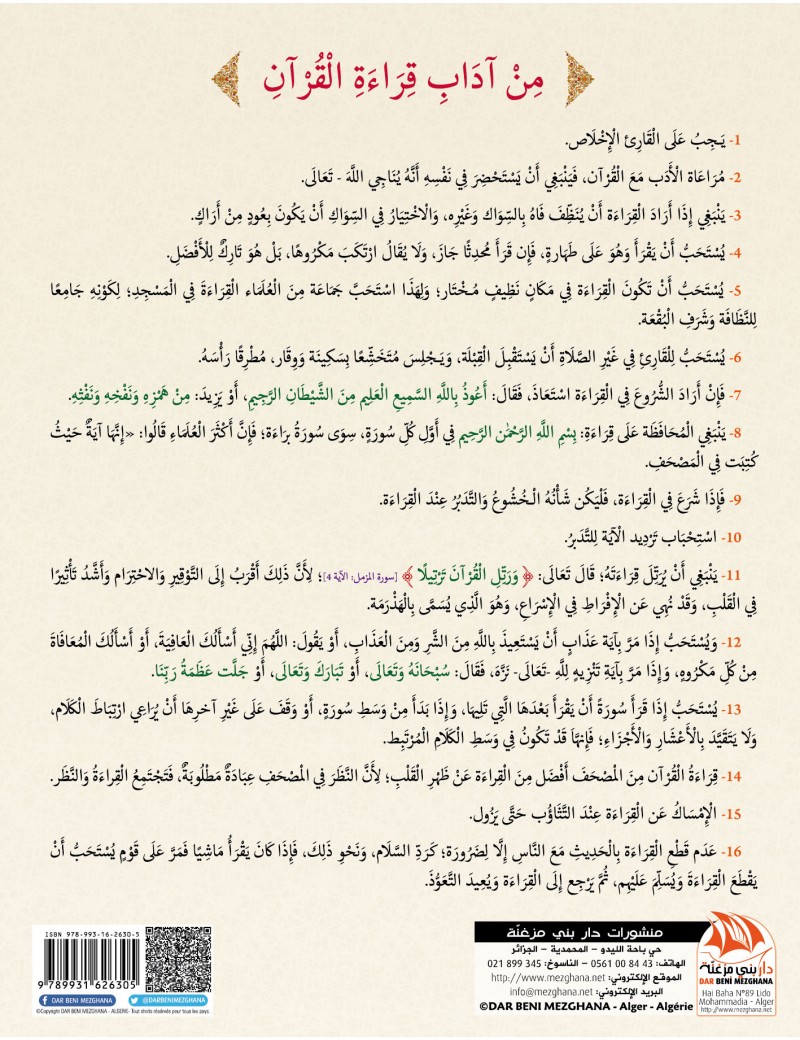 مِنْ آدَابِ قِرَاءَةِ الْقُرْآنِ
1- يَـجِبُ عَلَى الْقَارِئِ الْإِخْلَاص.
2- مُرَاعَاة الْأَدَب مَعَ الْقُرْآن، فَيَنْبَغِي أَنْ يَسْتَحْضِرَ فِي نَفْسِهِ أَنَّهُ يُنَاجِي اللَّهَ - تَعَالَى.
3- يَنْبَغِي إِذَا أَرَادَ الْقِرَاءَةَ أَنْ يُنَظِّفَ فَاهُ بِالسِّوَاك وَغَيْرِه، وَالْاخْتِيَارُ فِي السِّوَاكِ أَنْ يَكُونَ بِعُودٍ مِنْ أَرَاكٍ.
4- يُسْتَحَبُّ أَنْ يَقْرَأَ وَهُوَ عَلَى طَهَارةٍ، فَإِن قَرَأَ مُحدِثًا جَازَ، وَلَا يُقَالُ ارْتَكَبَ مَكْرُوهًا، بَلْ هُوَ تَارِكٌ لِلْأَفْضَلِ.
5- يُسْتَحَبُّ أَنْ تَكُونَ الْقِرَاءَة فِي مَكَانٍ نَظِيفٍ مُـخْتَار؛ وَلِهَذَا اسْتَحَبَّ جَمَاعَة مِنَ الْعُلَمَاء الْقِرَاءَةَ فِي الْمَسْجِدِ؛ لِكَوْنِهِ جَامِعًا
لِلنَّظَافَة وَشَرَفِ الْبُقْعَة.
6- يُسْتَحَبُّ لِلْقَارِئِ فِي غَيْرِ الصَّلَاةِ أَنْ يَسْتَقْبِلَ الْقِبْلَة، وَيَـجْلِس مُتَخَشِّعًا بِسَكِينَة وَوِقَار، مُطْرِقًا رَأْسُهُ.
7- فَإِنْ أَرَادَ الشُّرُوعَ فِي الْقِرَاءَة اسْتَعَاذَ، فَقَالَ: أَعُوذُ بِاللَّهِ السَّمِيعِ الْعَلِيمِ مِنَ الشَّيْطَانِ الرَّجِيمِ، أَوْ يَزِيدَ: مِنْ هَمْزِهِ وَنَفْخِهِ وَنَفْثِهِ.
8- يَنْبَغِي الْمُحَافَظَة عَلَى قِرَاءَةِ: بِسْمِ اللَّهِ الرَّحْمٰنِ الرَّحِيمِ فِي أَوَّلِ كُلِّ سُورَةٍ، سِوَى سُورَةُ بَرَاءَة؛ فَإِنَّ أَكْثَرَ الْعُلَمَاءِ قَالُوا: «إِنَّهَا آيَةٌ حَيْثُ
كُتِبَت فِي الْمَصْحَفِ.
9- فَإِذَا شَرَعَ فِي الْقِرَاءَة، فَلْيَكُن شَأْنُهُ الْـخُشُوعُ وَالتَّدَبُر عِنْدَ الْقِرَاءَة.
10- اسْتِحْبَاب تَرْدِيد الْآيَة لِلتَّدَبرُ.
11- يَنْبَغِي أَنْ يُرَتِّلَ قِرَاءَتَهُ؛ قَالَ تَعَالَى: ﴿ وَرَتِّلِ الْقُرْآنَ تَرْتِيلًا ﴾ [سورة المزمل: الآية 4]؛ لِأَنَّ ذَلِكَ أَقْرَبُ إِلَى التَّوْقِيرِ وَالاحْتِرَام وَأَشَّدُ تَأْثِيرًا
فِي الْقَلْبِ، وَقَدْ نُهِي عَنِ الْإِفْرَاطِ فِي الْإِسْرَاعِ، وَهُوَ الَّذِي يُسَمَّى بِالْهَذْرَمَة.
12- وَيُسْتَحَبُّ إِذَا مَرَّ بِآيَة عَذَابٍ أَنْ يَسْتَعِيذَ بِاللَّهِ مِنَ الشَّرِ وَمِنَ الْعَذَابِ، أَوْ يَقُولَ: اللَّهُمَ إِنِّي أَسْأَلُكَ الْعَافِيَةَ، أَوْ أَسْأَلُكَ الْمُعَافَاةَ
مِنْ كُلِّ مَكْرُوهٍ، وَإِذَا مَرَّ بِآيَةِ تَنْزِيهٍ لِلَّهِ -تَعَالَى- نَزَّهَ، فَقَالَ: سُبْحَانَهُ وَتَعَالَى، أَوْ تَبَارَكَ وَتَعَالَى، أَوْ جَلَّت عَظَمَةُ رَبِّنَا.
13- يُسْتَحَبُّ إِذَا قَرَأَ سُورَةً أَنْ يَقْرَأَ بَعْدَهَا الَّتِي تَلِيهَا، وَإِذَا بَدَأَ مِنْ وَسَطِ سُورَةٍ، أَوْ وَقَفَ عَلَى غَيْرِ آخِرِهَا أَنْ يُرَاعِي ارْتِبَاطَ الْكَلَام،
وَلَا يَتَقَيَّدَ بِالْأَعْشَارِ وَالْأَجْزَاءِ؛ فَإِنهَّا قَدْ تَكُونُ فِي وَسَطِ الْكَلَامِ الْمُرْتَبِط.
14- قِرَاءَةُ الْقُرْآن مِنَ الْمصْحَف أَفْضَل مِنَ الْقِرَاءَة عَنْ ظَهْرِ الْقَلْبِ؛ لِأَنَّ النَّظَرَ فِي الْمصْحَف عِبَادَةٌ مَطْلُوبَةٌ، فَتَجْتَمِعُ الْقِرَاءَةُ وَالنَّظَر.
15- الْإِمْسَاكُ عَنِ الْقِرَاءَة عِنْدَ التَّثَاؤُب حَتَّى يَزُول.
16- عَدَم قَطْعِ الْقِرَاءَة بِالْحَدِيثِ مَعَ النَّاسِ إِلَّا لِضَرُورَة؛ كَرَدِ السَّلَام، وَنَحْوِ ذَلِكَ، فَإِذَا كَانَ يَقْرَأُ مَاشِيًا فَمَرَّ عَلَى قَوْمٍ يُسْتَحَبُّ أَنْ
يَقْطَعَ الْقِرَاءَةَ وَيُسَلِّمَ عَلَيْهِم، ثُمَّ يَرْجِع إِلَى الْقِرَاءَة وَيُعِيدَ التَّعَوُّذَ.
منشورات دار بني مزغنّة
حي باحة الليدو - المحمدية - الجزائر
الهاتف: 43 84 00 0561 - الناسوخ: 345 899 021
الموقع الإلكتروني: http://www.mezghana.net
البريد الإلكتروني: info@mezghana.net
©DAR BENI MEZGHANA - Alger - Algérie
دار بني مزغنّة
DAR BENI MEZGHANA
Hai Baha N°89 Lido
Mohammadia - Alger
http://www.mezghana.net
ISBN 978-993-16-2630-5
9 789931 626305
DAR BENI MEZGHANA
@DARBENIMEZGHANA
©Copyright DAR BENI MEZGHANA - ALGERIE- Tout droits réservés pour tous les pays.